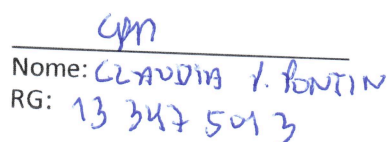 Nome: CLAUDIA P. PONTIN
RG: 13 347 501 3